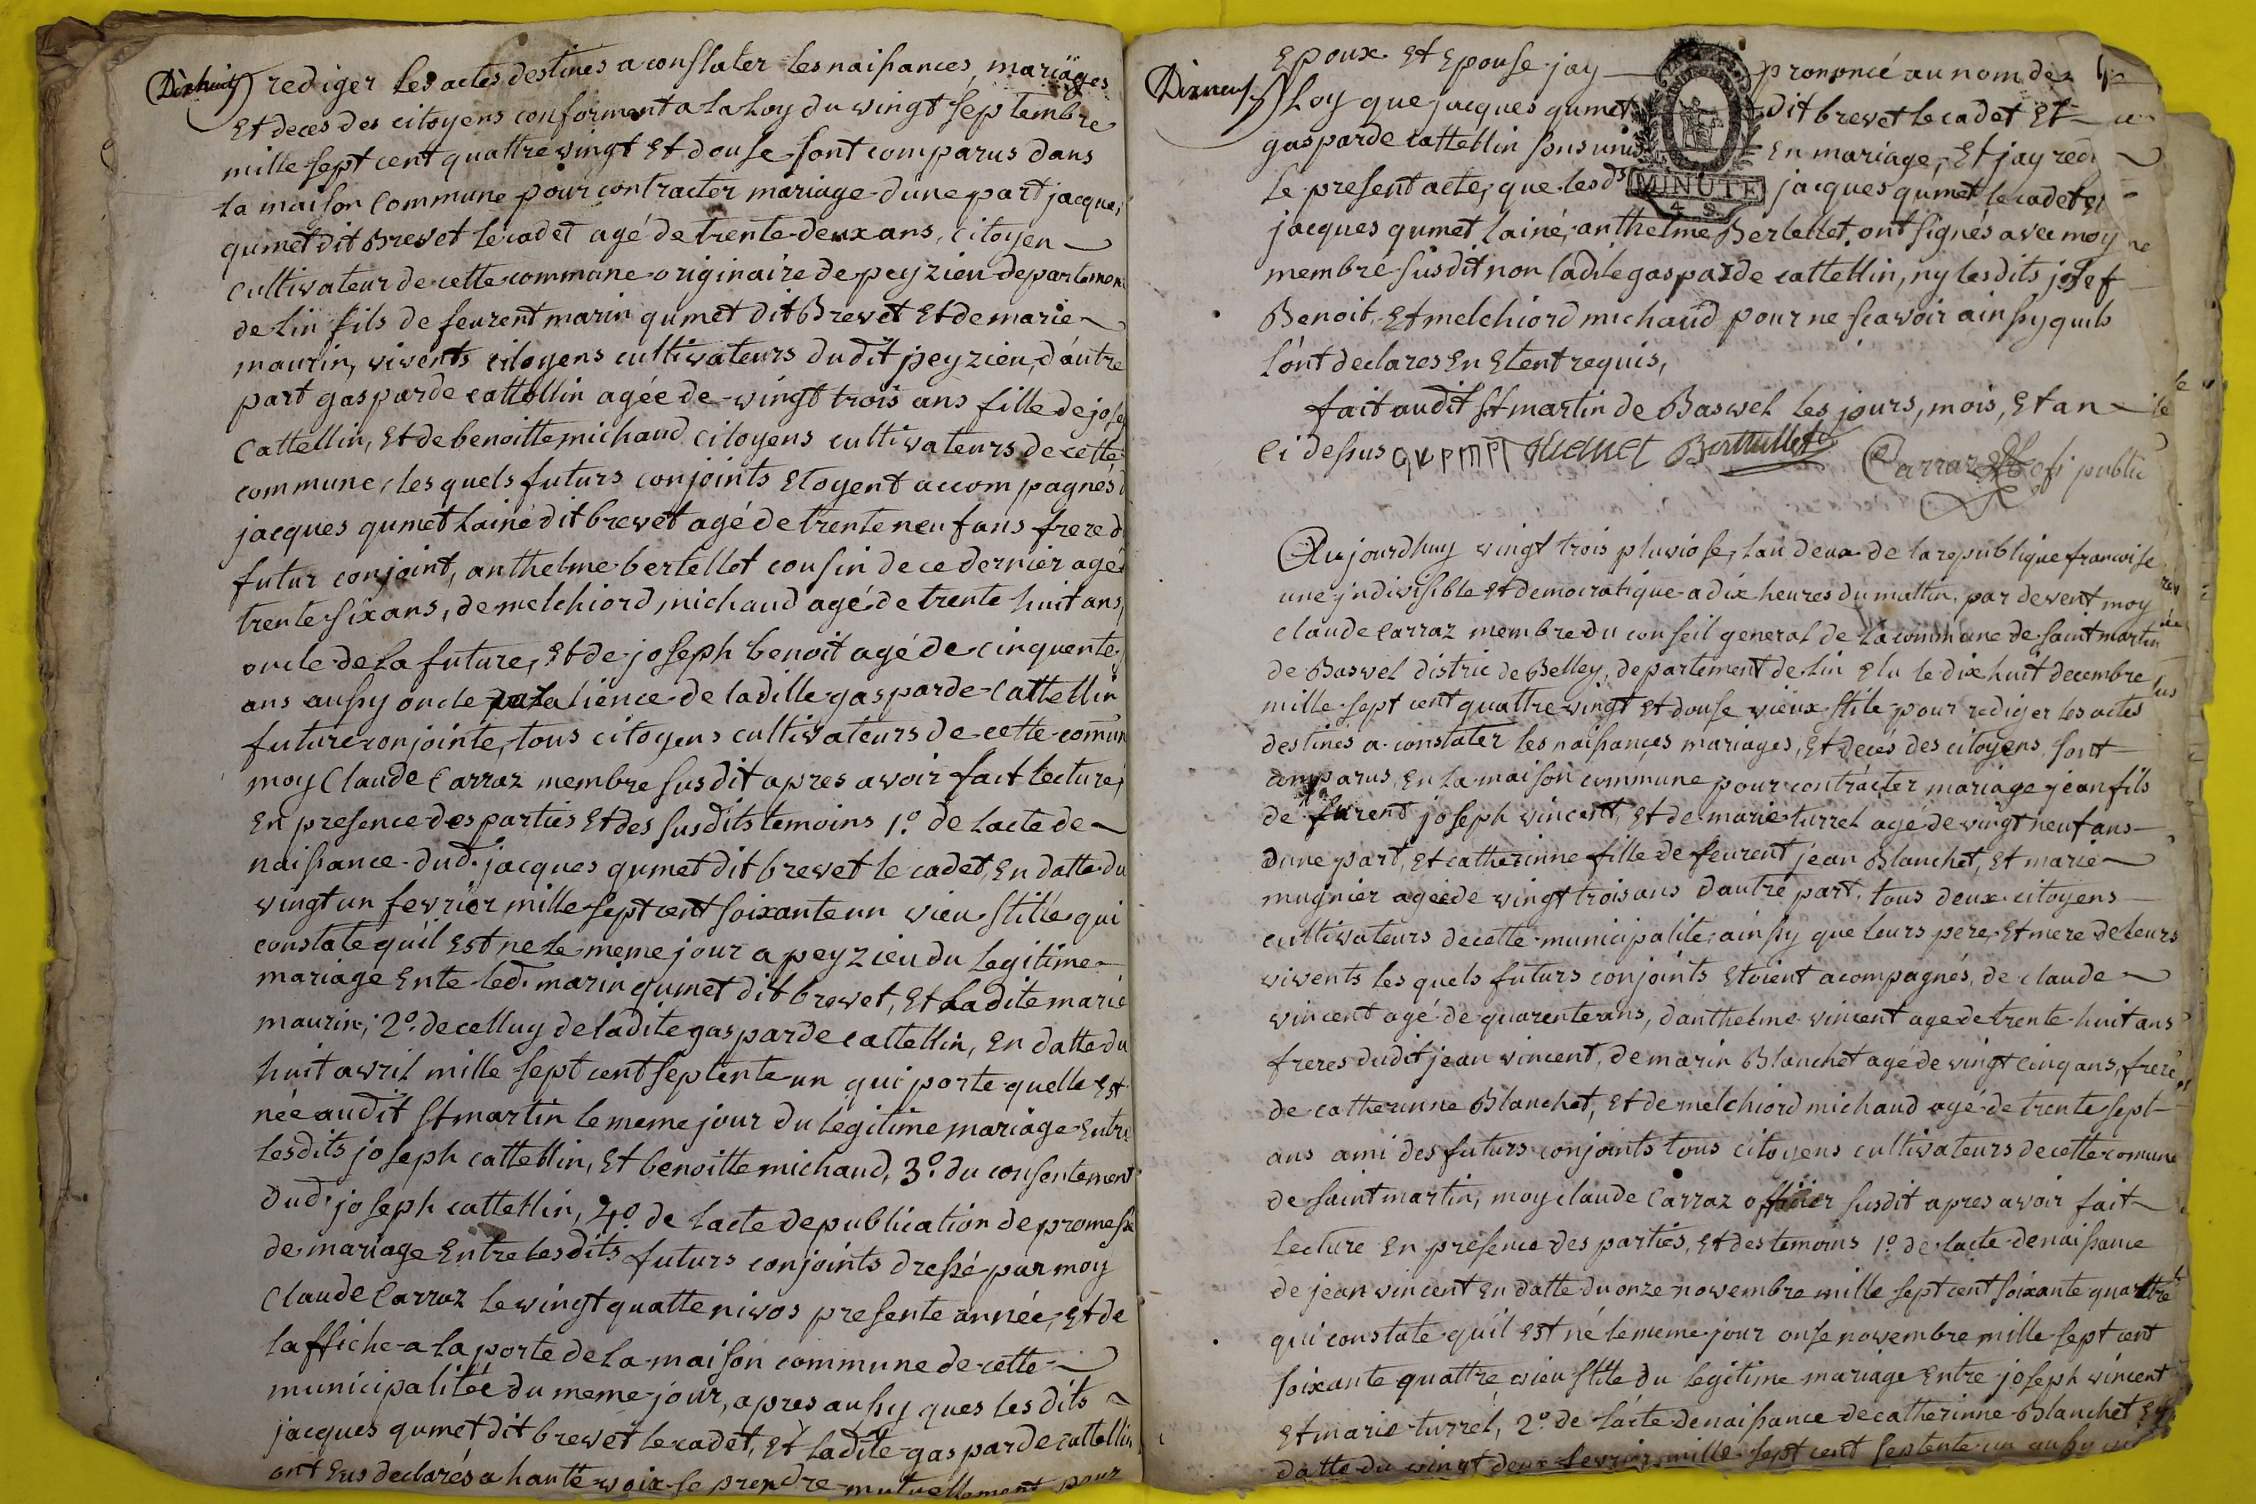 Dixhuit
rediger les actes destines a constater les naissances, mariages
Et deces des citoyens conforment a la Loy du vingt septembre
mille sept cent quattre vingt Et douse sont comparus dans
la maison commune pour contracter mariage dune part jacques
qumet dit Brevet le cadet agé de trente deux ans, citoyen
cultivateur de cette commune originaire de peyzieu departement
de lin fils de feurent marin qumet dit Brevet Et de marie
maurin, vivents citoyens cultivateurs dudit peyzieu, d'autre
part gasparde cattellin agée de vingt trois ans fille de josep
Cattellin, Et de benoitte michaud citoyens cultivateurs de cette
commune, les quels futurs conjoints Etoyent accompagnés d
jacques qumet lainé dit brevet agé de trente neuf ans frere d
futur conjoint, anthelme bertellet cousin de ce dernier agé
trente six ans, de melchiord michaud agé de trente huit ans,
oncle de la future, Et de joseph benoit agé de cinquente
ans aussy oncle par alience de ladille gasparde Cattellin
future conjointe, tous citoyens cultivateurs de cette comūn
moy Claude Carraz membre susdit apres avoir fait lecture,
En presence des parties Et des susdits temoins 1.º de lacte de
naissance dud. jacques qumet dit brevet le cadet, En datte du
vingt un fevrier mille sept cent soixante un vieu stille qui
constate quil Est ne le meme jour a peyzieu du legitime
mariage Ente led. marin qumet dit brevet, Et ladite marie
maurin; 2º. de celluy de ladite gasparde cattellin, En datte du
huit avril mille sept cent septente un qui porte quelle Est
née audit St martin le meme jour du legitime mariage Entre
lesdits joseph cattellin, Et benoitte michaud, 3º. du consentement
dud. joseph cattellin, 4º. de lacte de publication de promesse
de mariage Entre lesdits futurs conjoints dressé par moy
Claude Carraz le vingt quatte nivos presente année, Et de
laffiche a la porte de la maison commune de cette
municipalitéé du meme jour, apres aussy ques les dits
jacques qumet dit brevet le cadet, Et ladite gasparde cattellin
ont Eus declarés a hautte voix se prendre mutuellement pour
Dixneuf
Epoux Et Epouse jay prononcé au nom de
Loy que jacques qumet dit brevet le cadet Et
gasparde cattellin sons unis En mariage, Et jay redi
le present acte, que les ds jacques qumet le cadet Et
MINUTE
4 S.
jacques qumet lainé, anthelme Bertellet, ont signés avec moy
membre susdit non ladite gasparde cattellin, ny lesdits josef
Benoit, Et melchiord michaud pour ne scavoir ainsy quils
l'ont declares En Etent requis,
fait audit St martin de Bawel les jours, mois, Et an
ci dessus qvpmet qumet Berthellet Carraz ofi public
Aujourdhuy vingt trois pluviose, lan deux de la republique francoise
une jndivisible Et democratique a dix heures du mattin, par devent moy
claude Carraz membre du conseil general de la commune de saint martin
de Bawel distric de Belley, departement de lin Elu le dix huit decembre
mille sept cent quattre vingt Et douse vieux stile pour rediger les actes
destinés a constater les naissances mariages, Et decés des citoyens sont
comparus En la maison commune pour contracter mariage jean fils
de feurent joseph vincent, Et de marie turrel agé de vingt neuf ans
dune part, Et catherinne fille de feurent jean Blanchet, Et marie
mugnier agée de vingt trois ans d'autre part, tous deux citoyens
cultivateurs de cette municipalité, ainsy que leurs pere, Et mere de leurs
vivents les quels futurs conjoints Etoient acompagnés, de claude
vincent agé de quarente ans, d'anthelme vincent age de trente huit ans
freres dudit jean vincent, de marin Blanchet agé de vingt cinq ans, frere
de catherinne Blanchet, Et de melchiord michaud agé de trente sept
ans ami des futurs conjoints tous citoyens cultivateurs de cette comune
de saint martin, moy claude Carraz officier susdit apres avoir fait
lecture En presence des parties, Et des temoins 1º. de lacte de naissance
de jean vincent En datte du onze novembre mille sept cent soixante quattre
qui constate quil Est né le meme jour onse novembre mille sept cent
soixante quattre vieu stile du legitime mariage Entre joseph vincent
Et marie turrel, 2º. de lácte de naissance de catherinne Blanchet En
datte du vingt deux fevrier mille sept cent septente un aussy